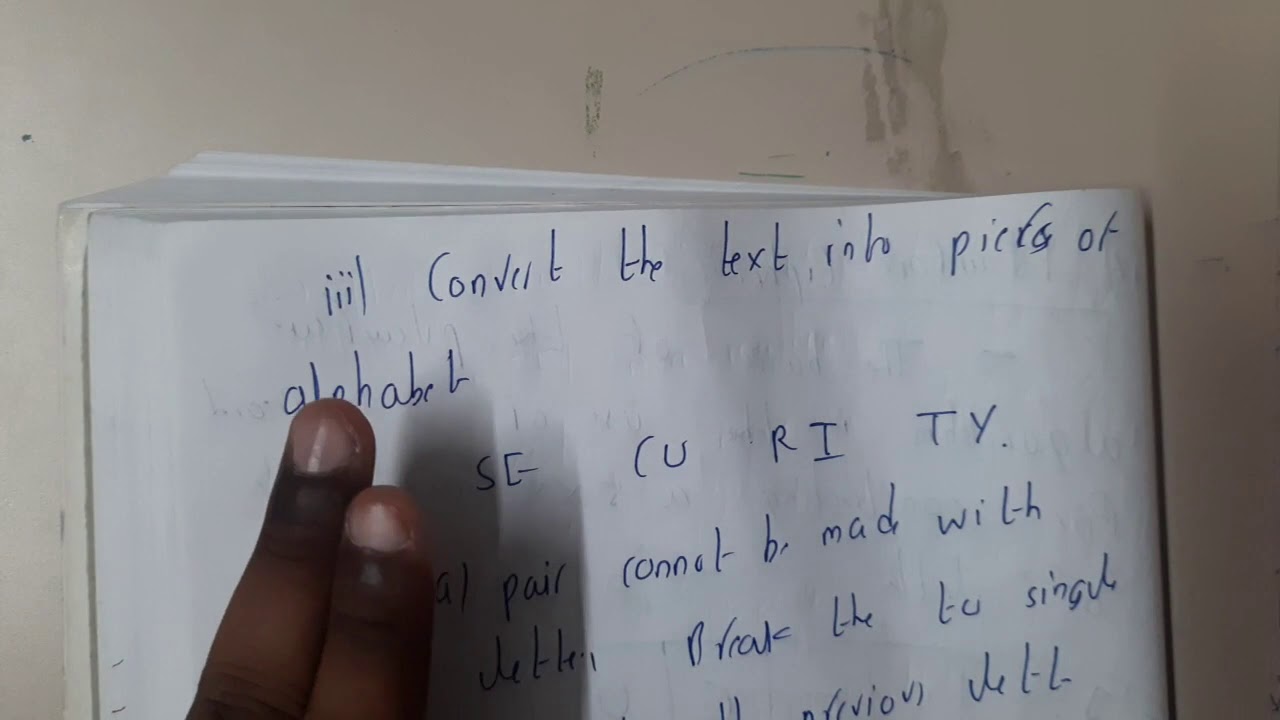 iii) Convert the text into
alphabet
SE CU RI TY.
a) pair cannot be made with
letter. Break the to single
previous lett